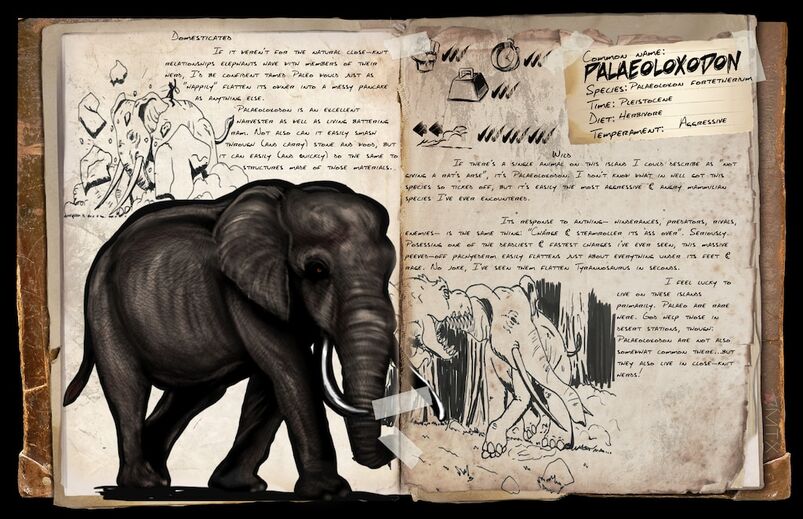 Domesticated
If it weren't for the natural close-knit
relationships elephants have with members of their
herd, I'd be confident tamed Paleo would just as
"happily" flatten its owner into a messy pancake
as anything else.
Palaeoloxodon is an excellent
harvester as well as living battering
ram. Not also can it easily smash
through (and carry) stone and wood, but
it can easily (and quickly) do the same to
structures made of those materials.
Common name:
PALAEOLOXODON
Species: Palaeoloxon fortethernum
Time: Pleistocene
Diet: Herbivore
Temperament: Aggressive
Wild
If there's a single animal on this island I could describe as "not
giving a rat's arse", it's Palaeoloxodon. I don't know what in hell got this
species so ticked off, but it's easily the most aggressive & angry mammilian
species I've ever encountered.
Its response to anthing- hinderances, predators, rivals,
enemies- is the same thing: "Charge & steamroller its ass over". Seriously.
Posessing one of the deadliest & fastest charges i've ever seen, this massive
peeved-off pachyderm easily flattens just about everything under its feet &
rage. No joke, I've seen them flatten Tyrannosaurus in seconds.
I feel lucky to
live on these islands
primarily. Palaeo are rare
here. God help those in
desert stations, though:
Palaeoloxodon are not also
somewhat common there...but
they also live in close-knit
herds!